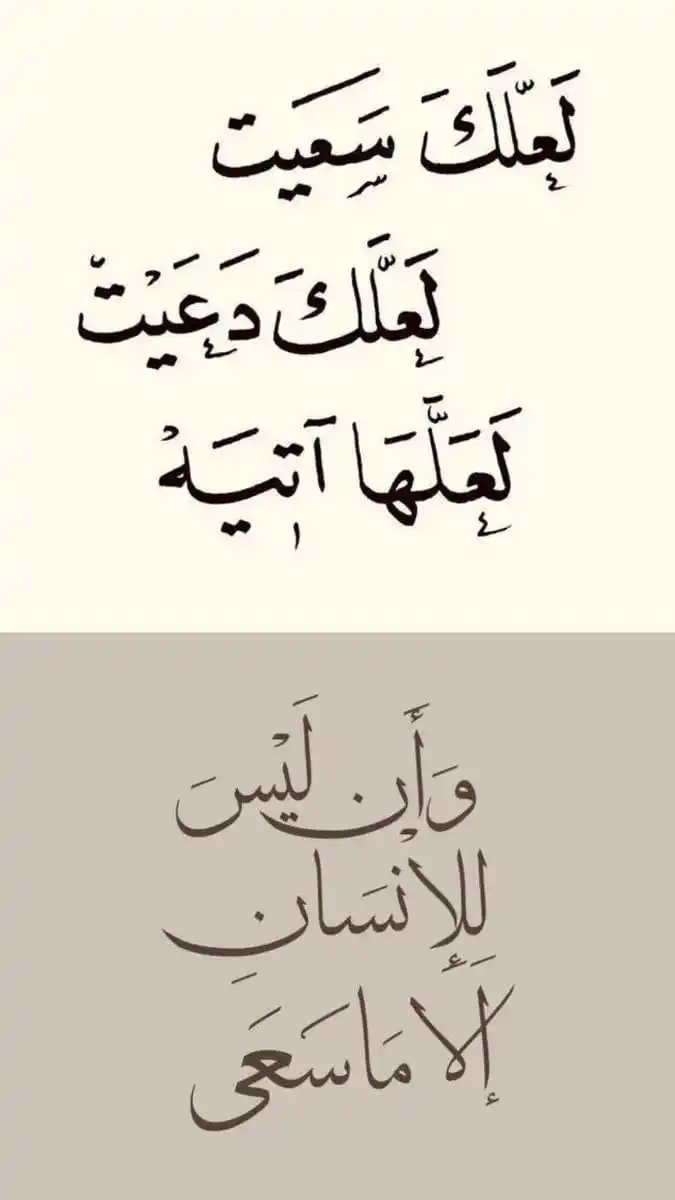 لَعلَّكَ سَعيت
لَعلَّكَ دَعَيْتْ
لَعَلَّهَا آتيَهْ
وَأَن لَيْسَ
لِلإِنْسَانِ
إَلَّا مَا سَعَى